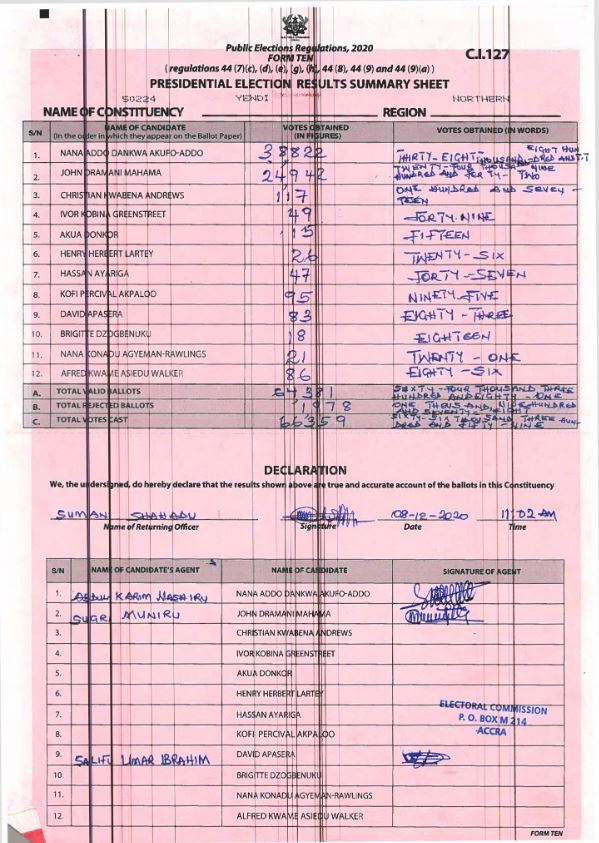 Public Elections Regulations, 2020
FORM TEN
C.I.127
( regulations 44 (7)(c), (d), (e), (g), (h), 44 (8), 44 (9) and 44 (9)(a) )
PRESIDENTIAL ELECTION RESULTS SUMMARY SHEET
S0224 YENDI NORTHERN
NAME OF CONSTITUENCY REGION
S/N NAME OF CANDIDATE (In the order in which they appear on the Ballot Paper) VOTES OBTAINED (IN FIGURES) VOTES OBTAINED (IN WORDS)
1. NANA ADDO DANKWA AKUFO-ADDO 38822 THIRTY-EIGHT THOUSAND EIGHT HUN-DRED AND T-T
2. JOHN DRAMANI MAHAMA 24942 TWENTY-FOUR THOUSAND NINE HUNDRED AND FORTY-TWO
3. CHRISTIAN KWABENA ANDREWS 117 ONE HUNDRED AND SEVEN-TEEN
4. IVOR KOBINA GREENSTREET 49 FORTY-NINE
5. AKUA DONKOR 115 FIFTEEN
6. HENRY HERBERT LARTEY 26 TWENTY-SIX
7. HASSAN AYARIGA 47 FORTY-SEVEN
8. KOFI PERCIVAL AKPALOO 95 NINETY-FIVE
9. DAVID APASERA 83 EIGHTY-THREE
10. BRIGITTE DZOGBENUKU 18 EIGHTEEN
11. NANA KONADU AGYEMAN-RAWLINGS 21 TWENTY-ONE
12. ALFRED KWAME ASIEDU WALKER 86 EIGHTY-SIX
A. TOTAL VALID BALLOTS 64381 SIXTY-FOUR THOUSAND THREE HUNDRED AND EIGHTY-ONE
B. TOTAL REJECTED BALLOTS 1978 ONE THOUSAND, NINE HUNDRED AND SEVENTY-EIGHT
C. TOTAL VOTES CAST 66359 SIXTY-SIX THOUSAND THREE HUN-DRED AND FIFTY-NINE
DECLARATION
We, the undersigned, do hereby declare that the results shown above are true and accurate account of the ballots in this Constituency
SUMANI SHAHADU 08-12-2020 11:02 AM
Name of Returning Officer Signature Date Time
S/N NAME OF CANDIDATE'S AGENT NAME OF CANDIDATE SIGNATURE OF AGENT
1. ABDUL KARIM NASHIRU NANA ADDO DANKWA AKUFO-ADDO
2. SUGRI MUNIRU JOHN DRAMANI MAHAMA
3. CHRISTIAN KWABENA ANDREWS
4. IVOR KOBINA GREENSTREET
5. AKUA DONKOR
6. HENRY HERBERT LARTEY
7. HASSAN AYARIGA
8. KOFI PERCIVAL AKPALOO
ELECTORAL COMMISSION
P. O. BOX M 214
ACCRA
9. SALIFU UMAR IBRAHIM DAVID APASERA
10. BRIGITTE DZOGBENUKU
11. NANA KONADU AGYEMAN-RAWLINGS
12. ALFRED KWAME ASIEDU WALKER
FORM TEN